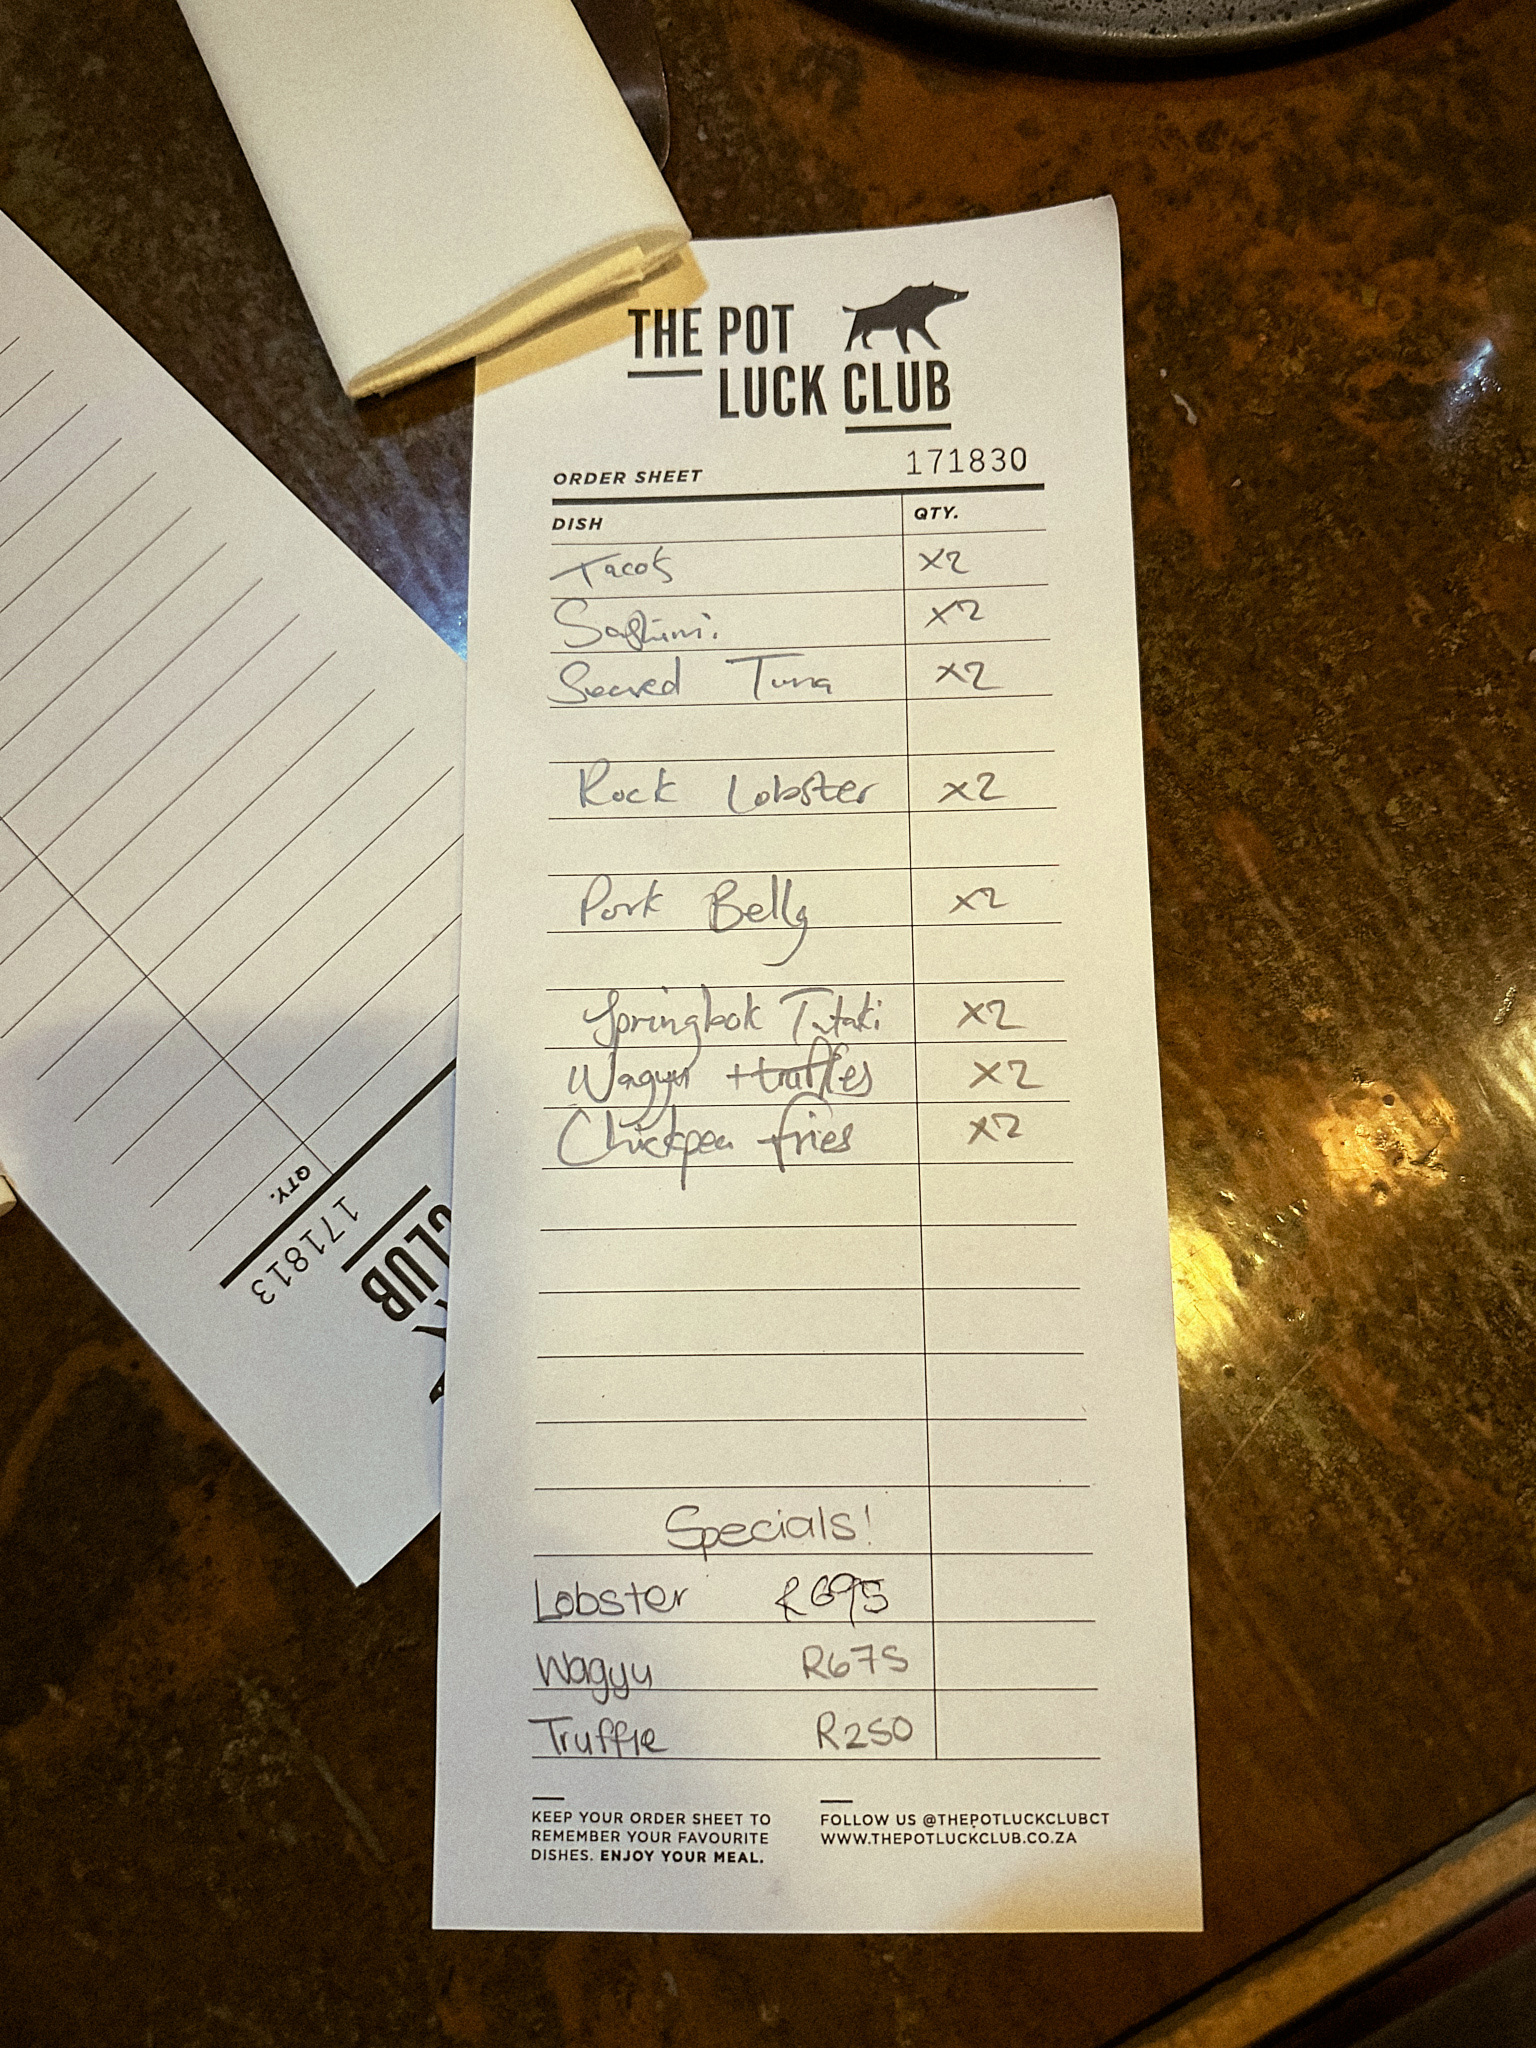 THE POT
LUCK CLUB
ORDER SHEET 171830
DISH QTY.
Taco's x2
Sashimi. x2
Seared Tuna x2
Rock Lobster x2
Pork Belly x2
Springbok Tataki x2
Wagyu + truffles x2
Chickpea fries x2
Specials!
Lobster R695
Wagyu R675
Truffle R250
KEEP YOUR ORDER SHEET TO
REMEMBER YOUR FAVOURITE
DISHES. ENJOY YOUR MEAL.
FOLLOW US @THEPOTLUCKCLUBCT
WWW.THEPOTLUCKCLUB.CO.ZA
QTY.
171813
CLUB